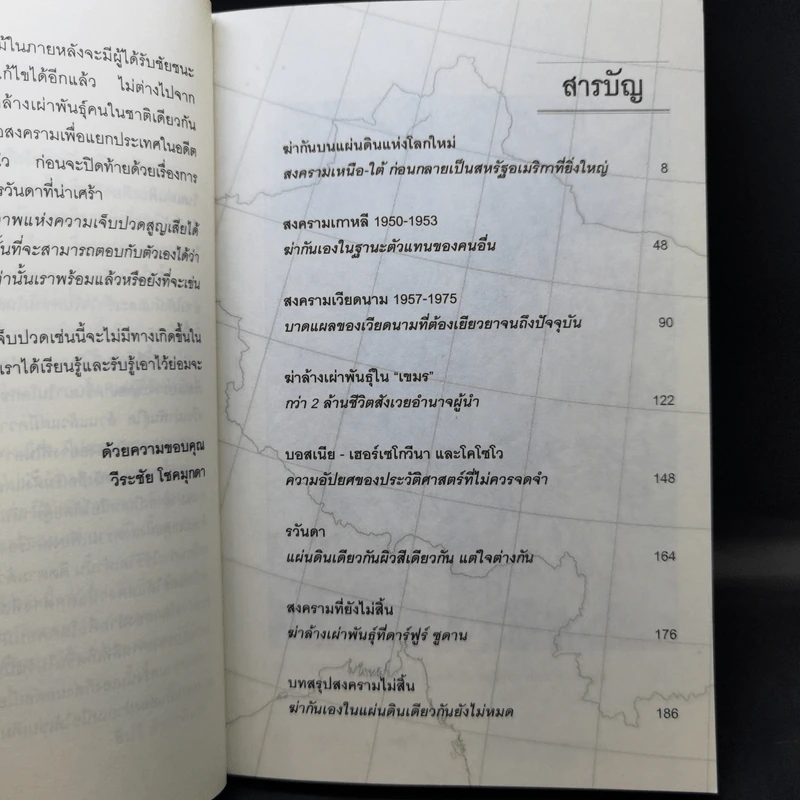 ม้ในภายหลังจะมีผู้ได้รับชัยชนะ
แก้ไขได้อีกแล้ว ไม่ต่างไปจาก
ล้างเผ่าพันธุ์คนในชาติเดียวกัน
สงครามเพื่อแยกประเทศในอดีต
ก่อนจะปิดท้ายด้วยเรื่องการ
รวันดาที่น่าเศร้า
ภาพแห่งความเจ็บปวดสูญเสียได้
นั้นที่จะสามารถตอบกับตัวเองได้ว่า
เท่านั้นเราพร้อมแล้วหรือยังที่จะเช่น
จ็บปวดเช่นนี้จะไม่มีทางเกิดขึ้นใน
เราได้เรียนรู้และรับรู้เอาไว้ย่อมจะ
ด้วยความขอบคุณ
วีระชัย โชคมุกดา
สารบัญ
ฆ่ากันบนแผ่นดินแห่งโลกใหม่
สงครามเหนือ-ใต้ ก่อนกลายเป็นสหรัฐอเมริกาที่ยิ่งใหญ่ 8
สงครามเกาหลี 1950-1953
ฆ่ากันเองในฐานะตัวแทนของคนอื่น 48
สงครามเวียดนาม 1957-1975
บาดแผลของเวียดนามที่ต้องเยียวยาจนถึงปัจจุบัน 90
ฆ่าล้างเผ่าพันธุ์ใน "เขมร"
กว่า 2 ล้านชีวิตสังเวยอำนาจผู้นำ 122
บอสเนีย - เฮอร์เซโกวีนา และโคโซโว
ความอัปยศของประวัติศาสตร์ที่ไม่ควรจดจำ 148
รวันดา
แผ่นดินเดียวกันผิวสีเดียวกัน แต่ใจต่างกัน 164
สงครามที่ยังไม่สิ้น
ฆ่าล้างเผ่าพันธุ์ที่ดาร์ฟูร์ ซูดาน 176
บทสรุปสงครามไม่สิ้น
ฆ่ากันเองในแผ่นดินเดียวกันยังไม่หมด 186